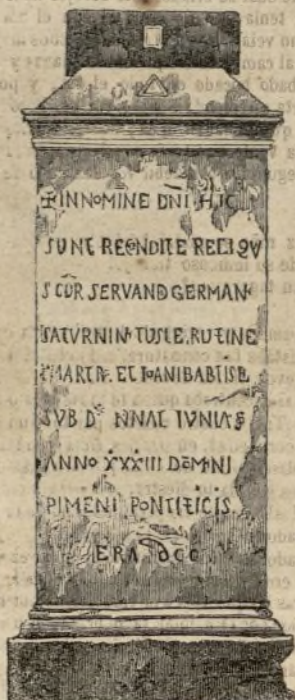 ✠ IN NOMINE DN̄I HIC
SUNT RECONDITE RELIQV
S C̄OR SERVAND GERMAN
SATURNINI IUSTE. RUFINE
MARTR. ET IOANI BABTISE
SUB D̄ NNAL IUNIAS
ANNO XXXIII DOM̄NI
PIMENI PONTIFICIS.
ERA DCC